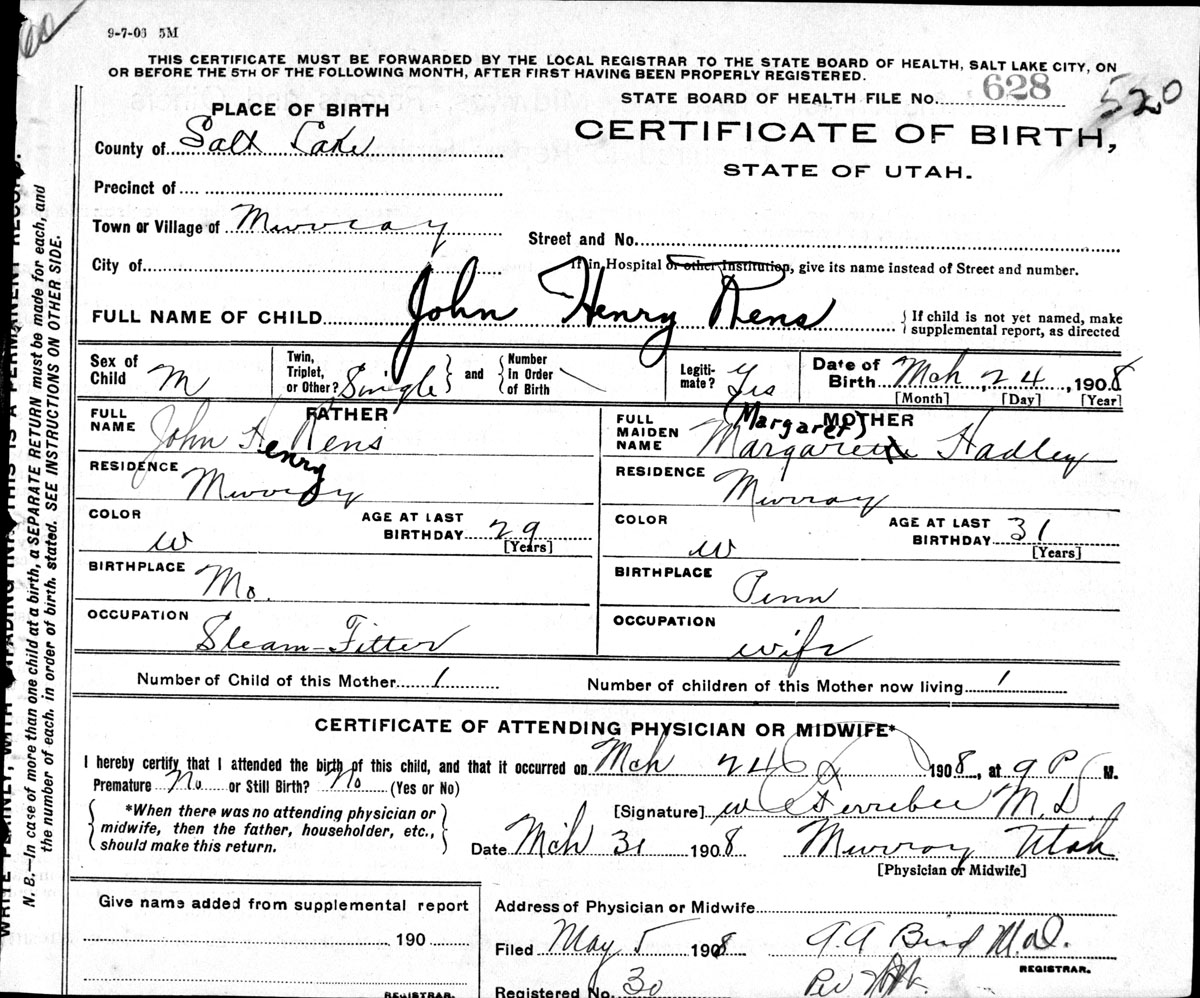 9-7-06 5M
THIS CERTIFICATE MUST BE FORWARDED BY THE LOCAL REGISTRAR TO THE STATE BOARD OF HEALTH, SALT LAKE CITY, ON
OR BEFORE THE 5TH OF THE FOLLOWING MONTH, AFTER FIRST HAVING BEEN PROPERLY REGISTERED.
STATE BOARD OF HEALTH FILE No. 628
520
PLACE OF BIRTH
CERTIFICATE OF BIRTH,
STATE OF UTAH.
County of Salt Lake
Precinct of
Town or Village of Murray
Street and No.
City of
If in Hospital or other Institution, give its name instead of Street and number.
FULL NAME OF CHILD John Henry Rens
If child is not yet named, make
supplemental report, as directed
Sex of Child M
Twin, Triplet, or Other? Single and Number In Order of Birth
Legiti-mate? Yes
Date of Birth Mch 24, 1908
[Month] [Day] [Year]
FATHER
FULL NAME John Henry Rens
RESIDENCE Murray
COLOR W
AGE AT LAST BIRTHDAY 29
[Years]
BIRTHPLACE Mo.
OCCUPATION Steam-Fitter
MOTHER
FULL MAIDEN NAME Margaret Hadley
RESIDENCE Murray
COLOR W
AGE AT LAST BIRTHDAY 31
[Years]
BIRTHPLACE Penn
OCCUPATION wife
Number of Child of this Mother 1
Number of children of this Mother now living 1
CERTIFICATE OF ATTENDING PHYSICIAN OR MIDWIFE*
I hereby certify that I attended the birth of this child, and that it occurred on Mch 24 1908, at 9 P M.
Premature No or Still Birth? No (Yes or No)
*When there was no attending physician or
midwife, then the father, householder, etc.,
should make this return.
[Signature] W C Ferrebee M.D.
Date Mch 31 1908 Murray Utah
[Physician or Midwife]
Give name added from supplemental report
190
REGISTRAR.
Address of Physician or Midwife
Filed May 5 1908 A. A. Bird M.D.
REGISTRAR.
Registered No. 30 Per
N. B.—In case of more than one child at a birth, a SEPARATE RETURN must be made for each, and
the number of each, in order of birth, stated. SEE INSTRUCTIONS ON OTHER SIDE.
THIS IS A PERMANENT RECORD.